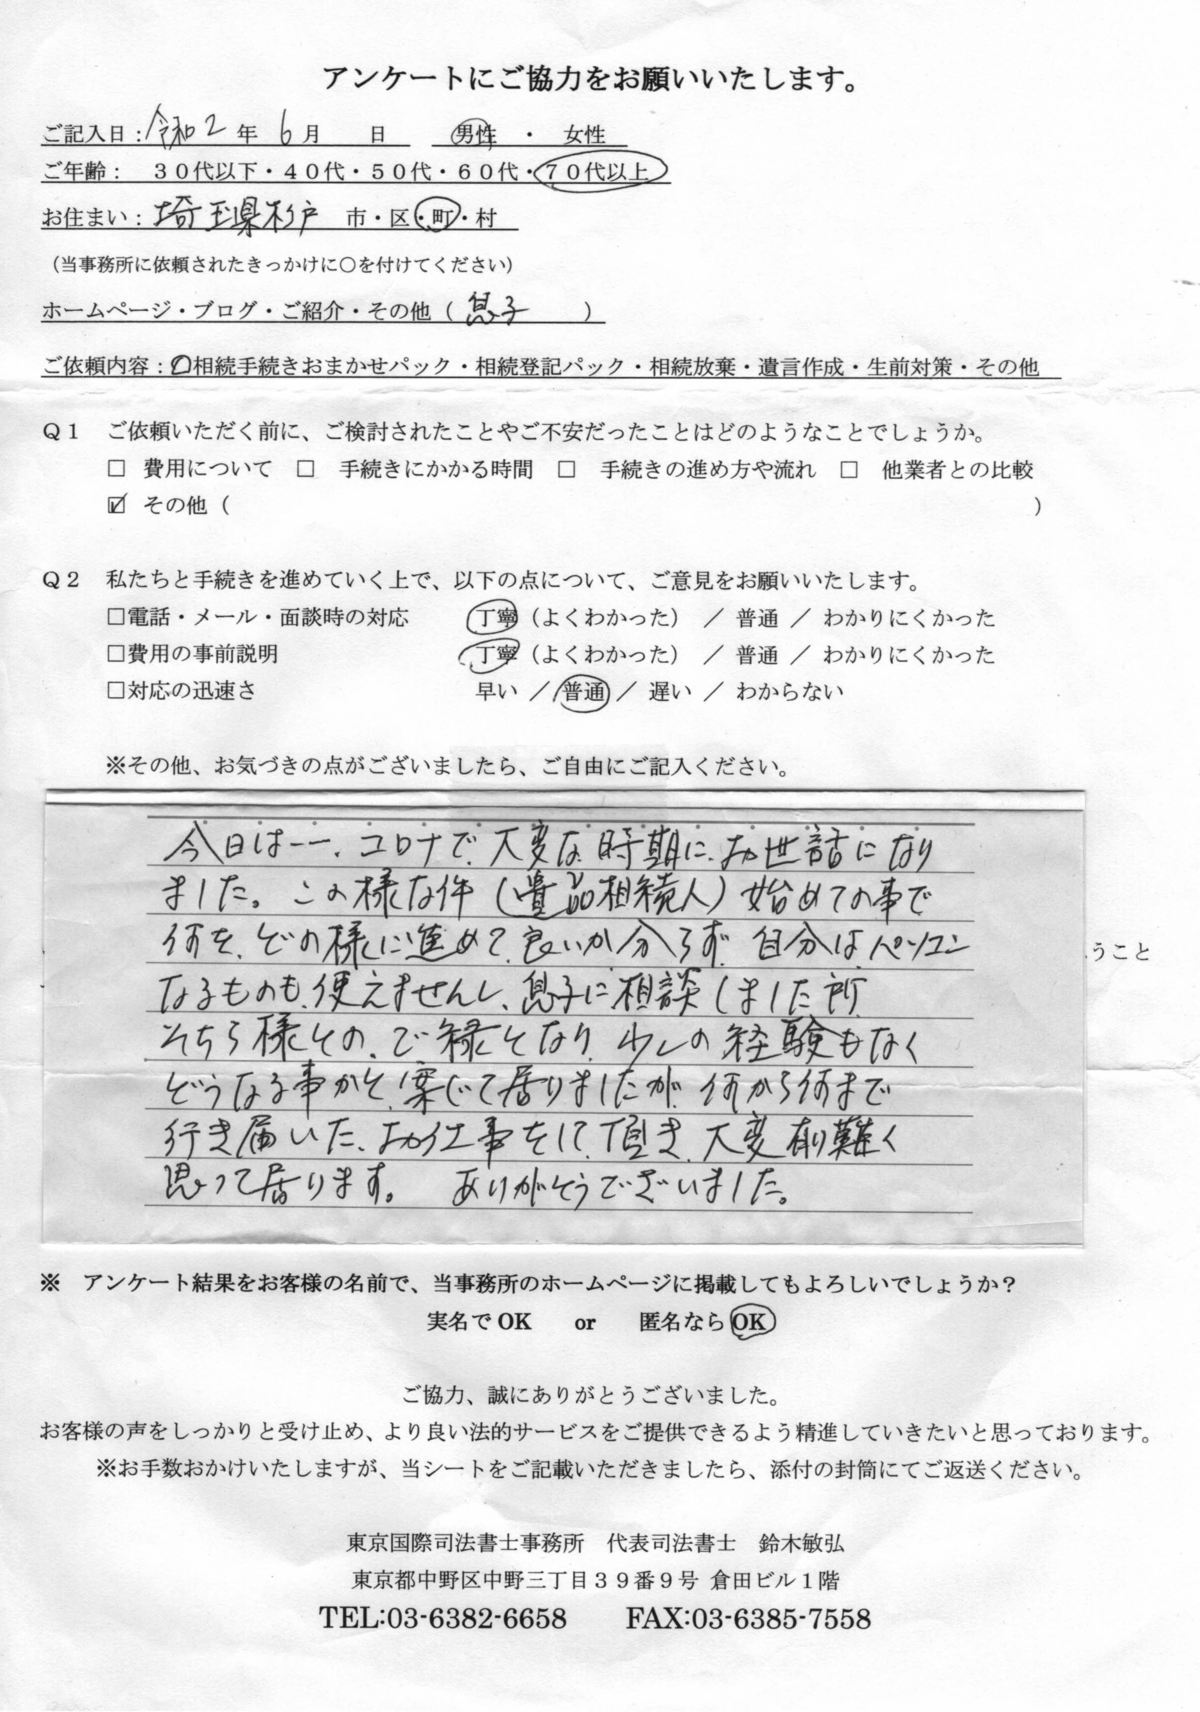 アンケートにご協力をお願いいたします。
ご記入日：令和2年 6月 日 男性 ・ 女性
ご年齢： ３０代以下・４０代・５０代・６０代・７０代以上
お住まい：埼玉県杉戸 市・区・町・村
（当事務所に依頼されたきっかけに○を付けてください）
ホームページ・ブログ・ご紹介・その他（ 息子 ）
ご依頼内容：○相続手続きおまかせパック・相続登記パック・相続放棄・遺言作成・生前対策・その他
Ｑ１ ご依頼いただく前に、ご検討されたことやご不安だったことはどのようなことでしょうか。
□ 費用について □ 手続きにかかる時間 □ 手続きの進め方や流れ □ 他業者との比較
☑ その他（ ）
Ｑ２ 私たちと手続きを進めていく上で、以下の点について、ご意見をお願いいたします。
□電話・メール・面談時の対応 丁寧（よくわかった） ／ 普通 ／ わかりにくかった
□費用の事前説明 丁寧（よくわかった） ／ 普通 ／ わかりにくかった
□対応の迅速さ 早い ／ 普通 ／ 遅い ／ わからない
※その他、お気づきの点がございましたら、ご自由にご記入ください。
今日は一一、コロナで、大変な時期に、お世話になり
ました。この様な件（遺品相続人）始めての事で
何を、どの様に進めて、良いか分らず、自分はパソコン
なるものも、使えませんし、息子に相談しました所
そちら様との、ご縁となり、少しの経験もなく
どうなる事かと、案じて居りましたが、何から何まで
行き届いた、お仕事をして頂き、大変有難く
思って居ります。 ありがとうございました。
うこと
※ アンケート結果をお客様の名前で、当事務所のホームページに掲載してもよろしいでしょうか？
実名で OK or 匿名なら OK
ご協力、誠にありがとうございました。
お客様の声をしっかりと受け止め、より良い法的サービスをご提供できるよう精進していきたいと思っております。
※お手数おかけいたしますが、当シートをご記載いただきましたら、添付の封筒にてご返送ください。
東京国際司法書士事務所 代表司法書士 鈴木敏弘
東京都中野区中野三丁目３９番９号 倉田ビル１階
TEL:03-6382-6658 FAX:03-6385-7558